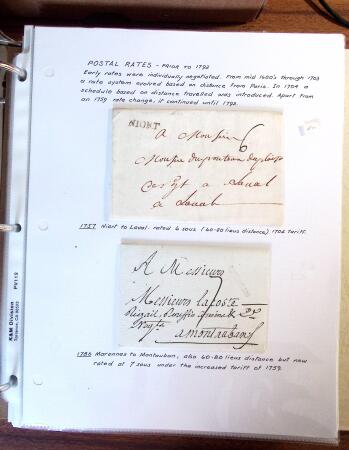 POSTAL RATES - PRIOR TO 1792
Early rates were individually negotiated. From mid 1600's through 1703
a rate system evolved based on distance from Paris. In 1704 a
schedule based on distance travelled was introduced. Apart from
an 1759 rate change, it continued until 1792.
NIORT
6
A Monsieur
Monsieur
a Laval
a Laval
1757 Niort to Laval rated 6 sous (60-80 lieus distance) 1704 tariff.
A Messieurs
Messieurs Lacoste
7
a montauban
1786 Marennes to Montauban; also 60-80 lieus distance but now
rated at 7 sous under the increased tariff of 1759.
K&M Division
Torrance, CA 90503
PV119